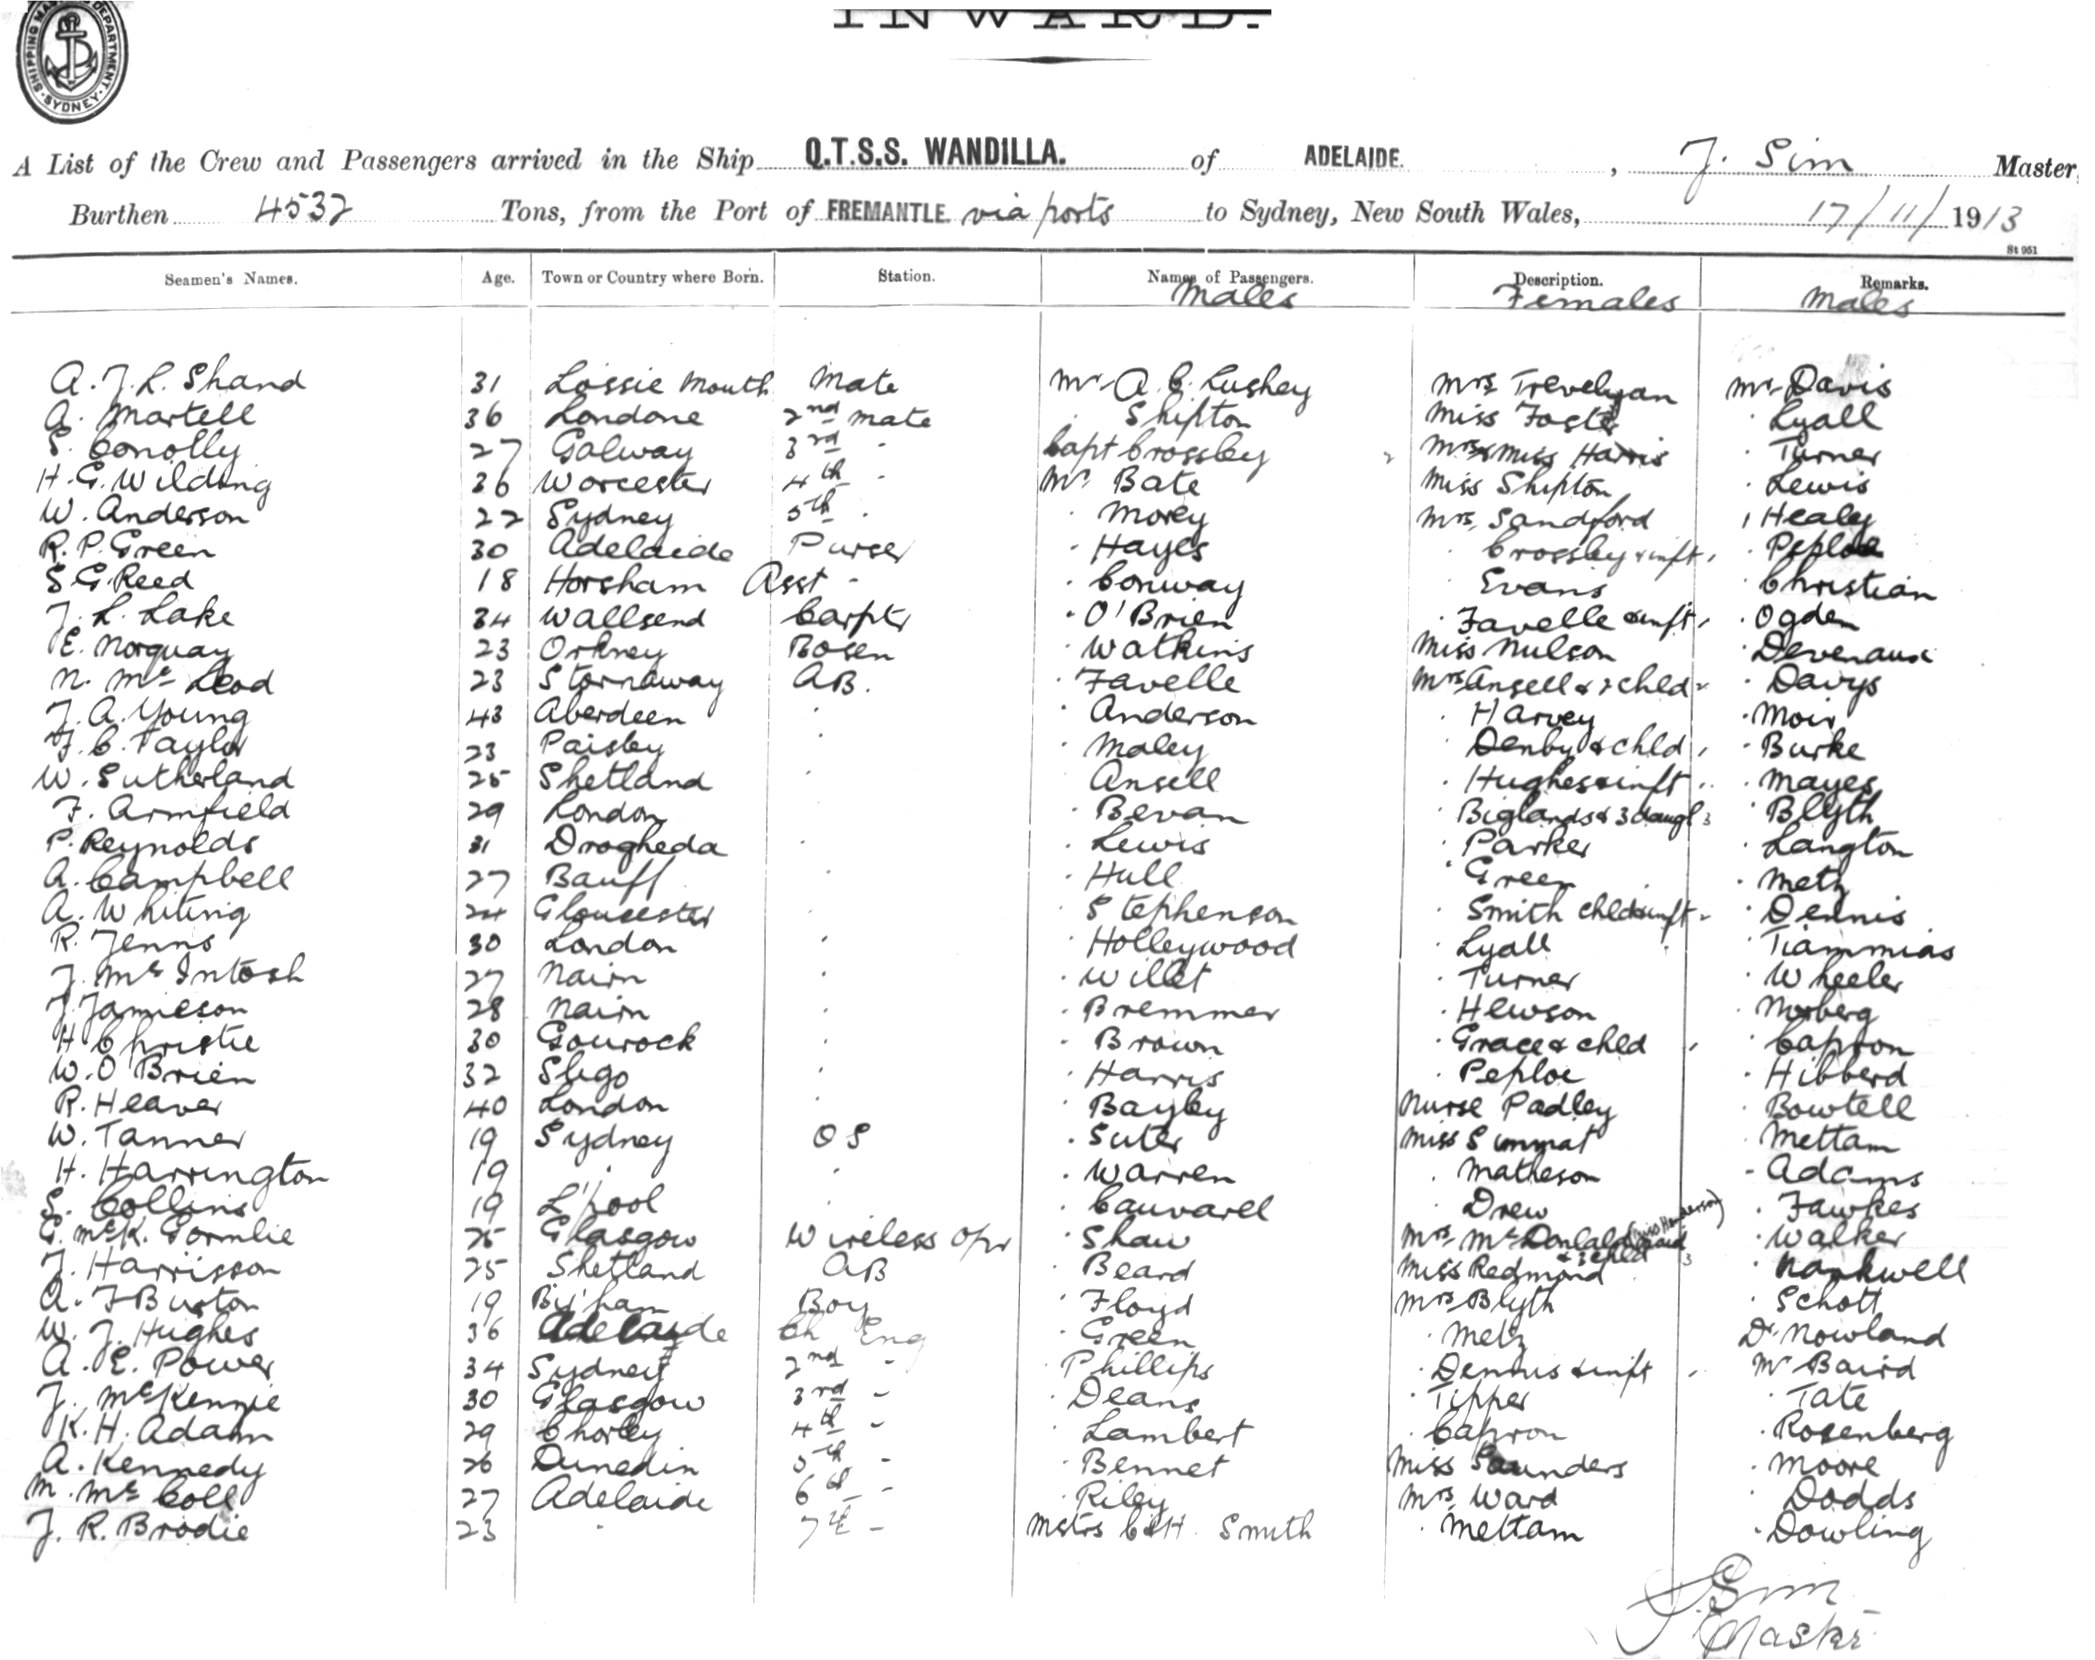 SHIPPING MA DEPARTMENT. SYDNEY
INWARD.
A List of the Crew and Passengers arrived in the Ship Q.T.S.S. WANDILLA. of ADELAIDE. , J. Sim Master,
Burthen 4532 Tons, from the Port of FREMANTLE via ports to Sydney, New South Wales, 17/11/1913
St 951
Seamen's Names. Age. Town or Country where Born. Station. Names of Passengers. Description. Remarks.
Males Females Males
A. J. L. Shand 31 Lossie Mouth Mate Mr A. C. Lushey Mrs Trevelyan Mr Davis
A. Martell 36 Londone 2nd Mate Shipton Miss Foster Lyall
S. Conolly 27 Galway 3rd - Capt Crossley Mrs & Miss Harris Turner
H. G. Wilding 36 Worcester 4th - Mr Bate Miss Shipton Lewis
W. Anderson 22 Sydney 5th Morey Mrs Sandford Healy
R. P. Green 30 Adelaide Purser Hayes Crossley & inft Peploe
S. G. Reed 18 Horsham Asst - Conway Evans Christian
J. L. Lake 34 Wallsend Carptr O'Brien Favelle & inft Ogden
E. Norquay 23 Orkney Bosen Watkins Miss Nulson Devenaux
N. McLeod 23 Stornaway AB. Favelle Mrs Ansell & 2 chld Davys
J. A. Young 43 Aberdeen Anderson Harvey Moir
J. C. Taylor 23 Paisley Maley Denby & chld Burke
W. Sutherland 25 Shetland Ansell Hughes & inft Mayes
F. Armfield 29 London Bevan Biglands & 3 daugt 3 Blyth
P. Reynolds 31 Drogheda Lewis Parker Langton
A. Campbell 27 Banff Hull Green Metz
A. Whiting 24 Gloucester Stephenson Smith chld & inft Dennis
R. Jenns 30 London Holleywood Lyall Tiammias
J. McIntosh 27 Nairn Willet Turner Wheeler
J. Jamieson 28 Nairn Bremmer Hewson Norberg
H Christie 30 Gourock Brown Grace & chld Capron
W. O'Brien 32 Sligo Harris Peploe Hibberd
R. Heaver 40 London Bayley Nurse Padley Bowtell
W. Tanner 19 Sydney OS Suter Miss Mettam
H. Harrington 19 Warren Matheson Adams
S. Collins 19 L'pool Cauvarel Drew Fawkes
G. McK. Gormlie 25 Glasgow Wireless Opr Shaw Mrs McDonald (Miss Henderson) & 3 chld 3 Walker
J. Harrisson 25 Shetland AB Beard Miss Redmond Nankwell
A. J Burton 19 B'ham Boy Floyd Mrs Blyth Schott
W. J. Hughes 36 Adelaide Ch Eng Green Metz Dr Nowland
A. E. Power 34 Sydney 2nd - Phillips Dennis & inft Mr Baird
J. McKenzie 30 Glasgow 3rd - Deans Tipper Tate
K. H. Adam 29 Chorley 4th - Lambert Capron Rosenberg
A. Kennedy 26 Dunedin 5th - Bennet Miss Saunders Moore
M. McColl 27 Adelaide 6th - Riley Mrs Ward Dodds
J. R. Brodie 23 - 7th - Mstrs C & H. Smith Mettam Dowling
J Sim
Master